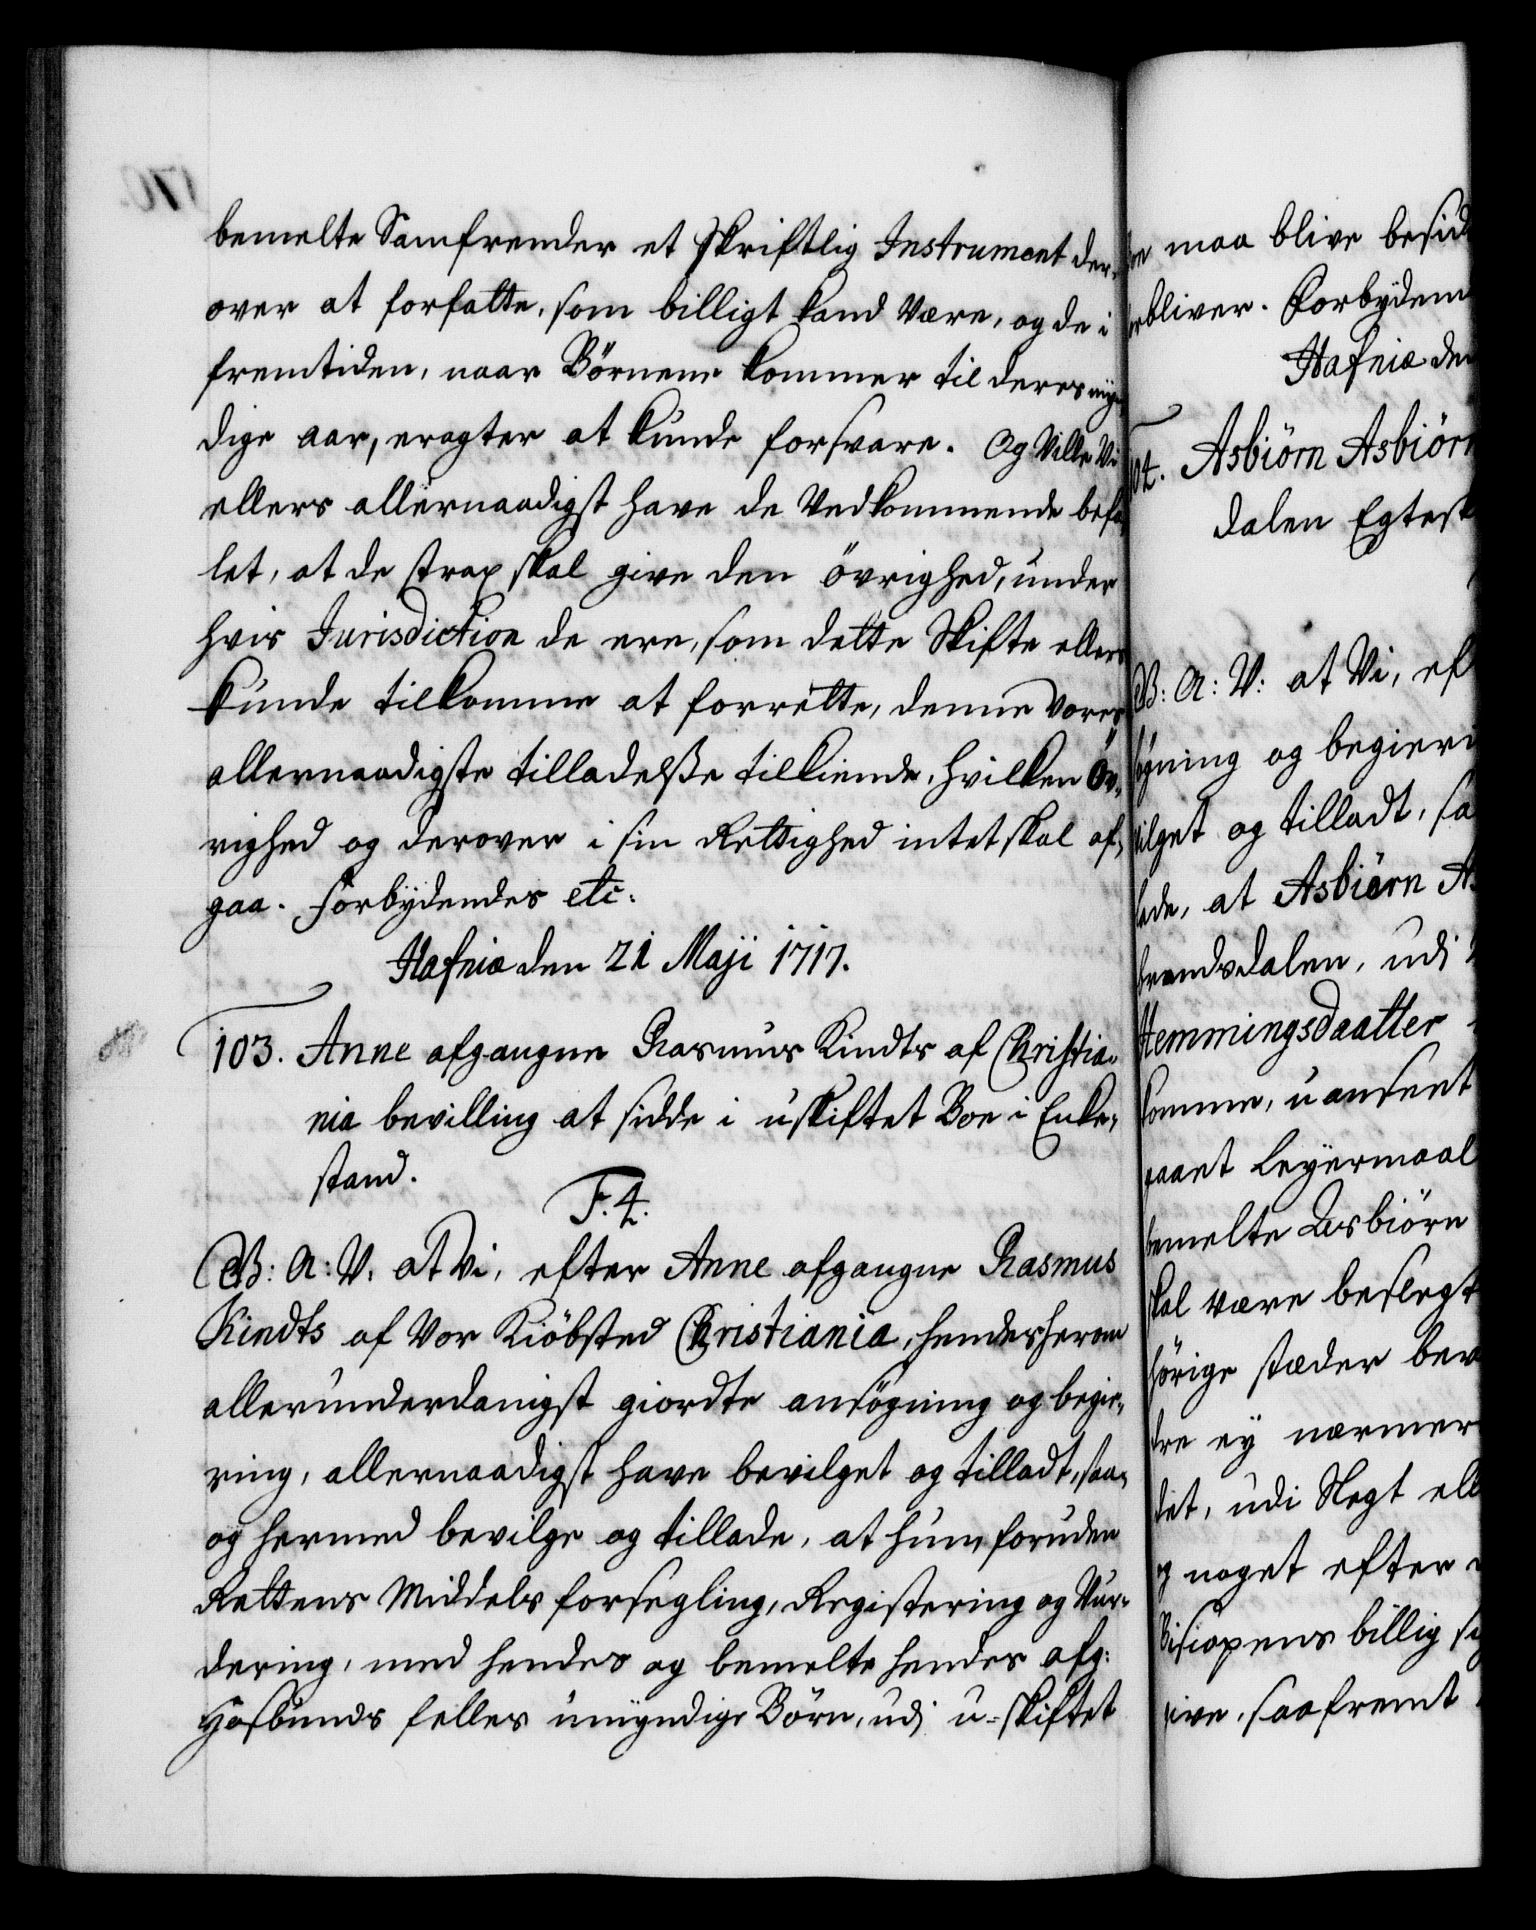 bemelte Samfrender et skriftlig Instrument der-
over at forfatte, som billigt kand være, og de i
fremtiden, naar Börnene kommer til deres myn-
dige aar, eragter at kunde forsvare. Og Ville Vi
ellers allernaadigst have de Vedkommende befa-
let, at de strax skal give den övrighed, under
hvis Jurisdiction de ere, som dette Skifte ellers
kunde tilkomme at forrette, denne Vores
allernaadigste tilladelsse tilkiende, hvilken Öv-
righed og derover i sin Rettighed intet skal af-
gaa. Forbydendes etc:
Hafniæ den 21 Maji 1717.
103. Anne afgangne Rasmus Kindts af Christia-
nia bevilling at sidde i uskiftet Boe i Enke-
stand.
F. 4.
G: A: V. at Vi, efter Anne afgangne Rasmus
Kindts af Vor Kiöbsted Christiania, hendes herom
allerunderdanigst giordte ansögning og begie-
ring, allernaadigst have bevilget og tilladt, saa-
og hermed bevilge og tillade, at hun, foruden
Rettens Middels forsegling, Registering og Vur-
dering, med hendes og bemelte hendes afg:
Hosbunds felles umyndige Börn, udj u-skiftet
maa blive besid
bliver. Forbydend
Hafniæ den
104. Asbiörn Asbiörn
dalen Egtesk
G: A: V: at Vi, ef
ögning og begieri
vilget og tilladt, sa
lade, at Asbiörn As
brandsdalen, udj
Hemmingsdaatter
komme, uanseet
gaaet Leyermaal
bemelte Asbiörn
skal være beslegt
hörige stæder bev
dre ey nærmer
det, udi Slegt ell
og noget efter
Bisiopens billig si
give, saafremt